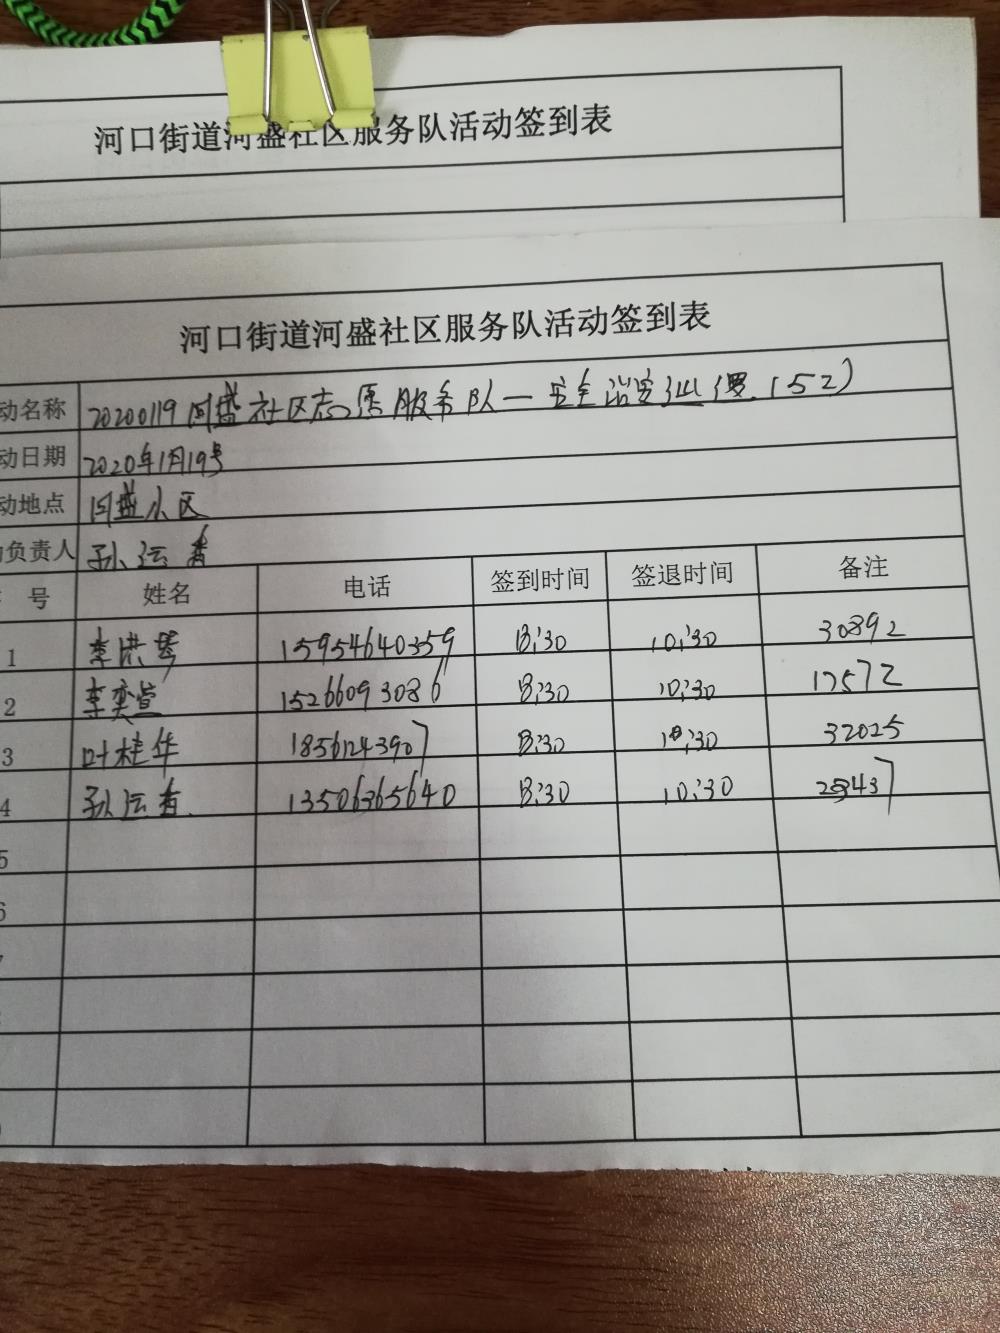 河口街道河盛社区服务队活动签到表
河口街道河盛社区服务队活动签到表
动名称 20200119河盛社区志愿服务队一安全治安巡逻(52)
动日期 2020年1月19号
动地点 河盛小区
负责人 孙运香
号 姓名 电话 签到时间 签退时间 备注
1 李洪琴 15954640359 8:30 10:30 30892
2 李奕萱 15266093086 8:30 10:30 17572
3 叶桂华 18561243907 8:30 10:30 32025
4 孙运香 13506365640 8:30 10:30
5
6